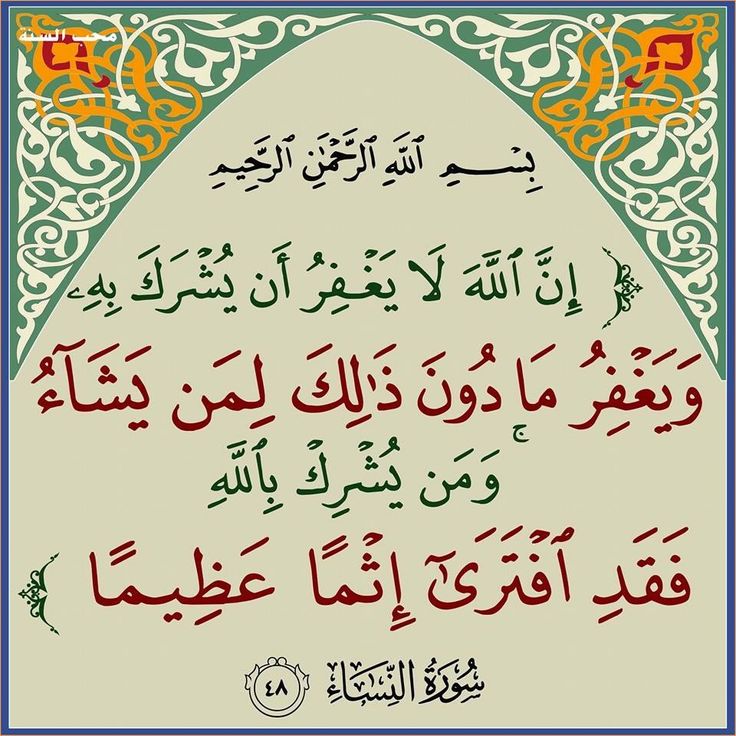 محب السنة
بِسْمِ ٱللَّهِ ٱلرَّحْمَٰنِ ٱلرَّحِيمِ
﴿ إِنَّ ٱللَّهَ لَا يَغْفِرُ أَن يُشْرَكَ بِهِۦ
وَيَغْفِرُ مَا دُونَ ذَٰلِكَ لِمَن يَشَآءُ
ۚ وَمَن يُشْرِكْ بِٱللَّهِ
فَقَدِ ٱفْتَرَىٰٓ إِثْمًا عَظِيمًا ﴾
سُورَةُ النِّسَاءِ ٤٨